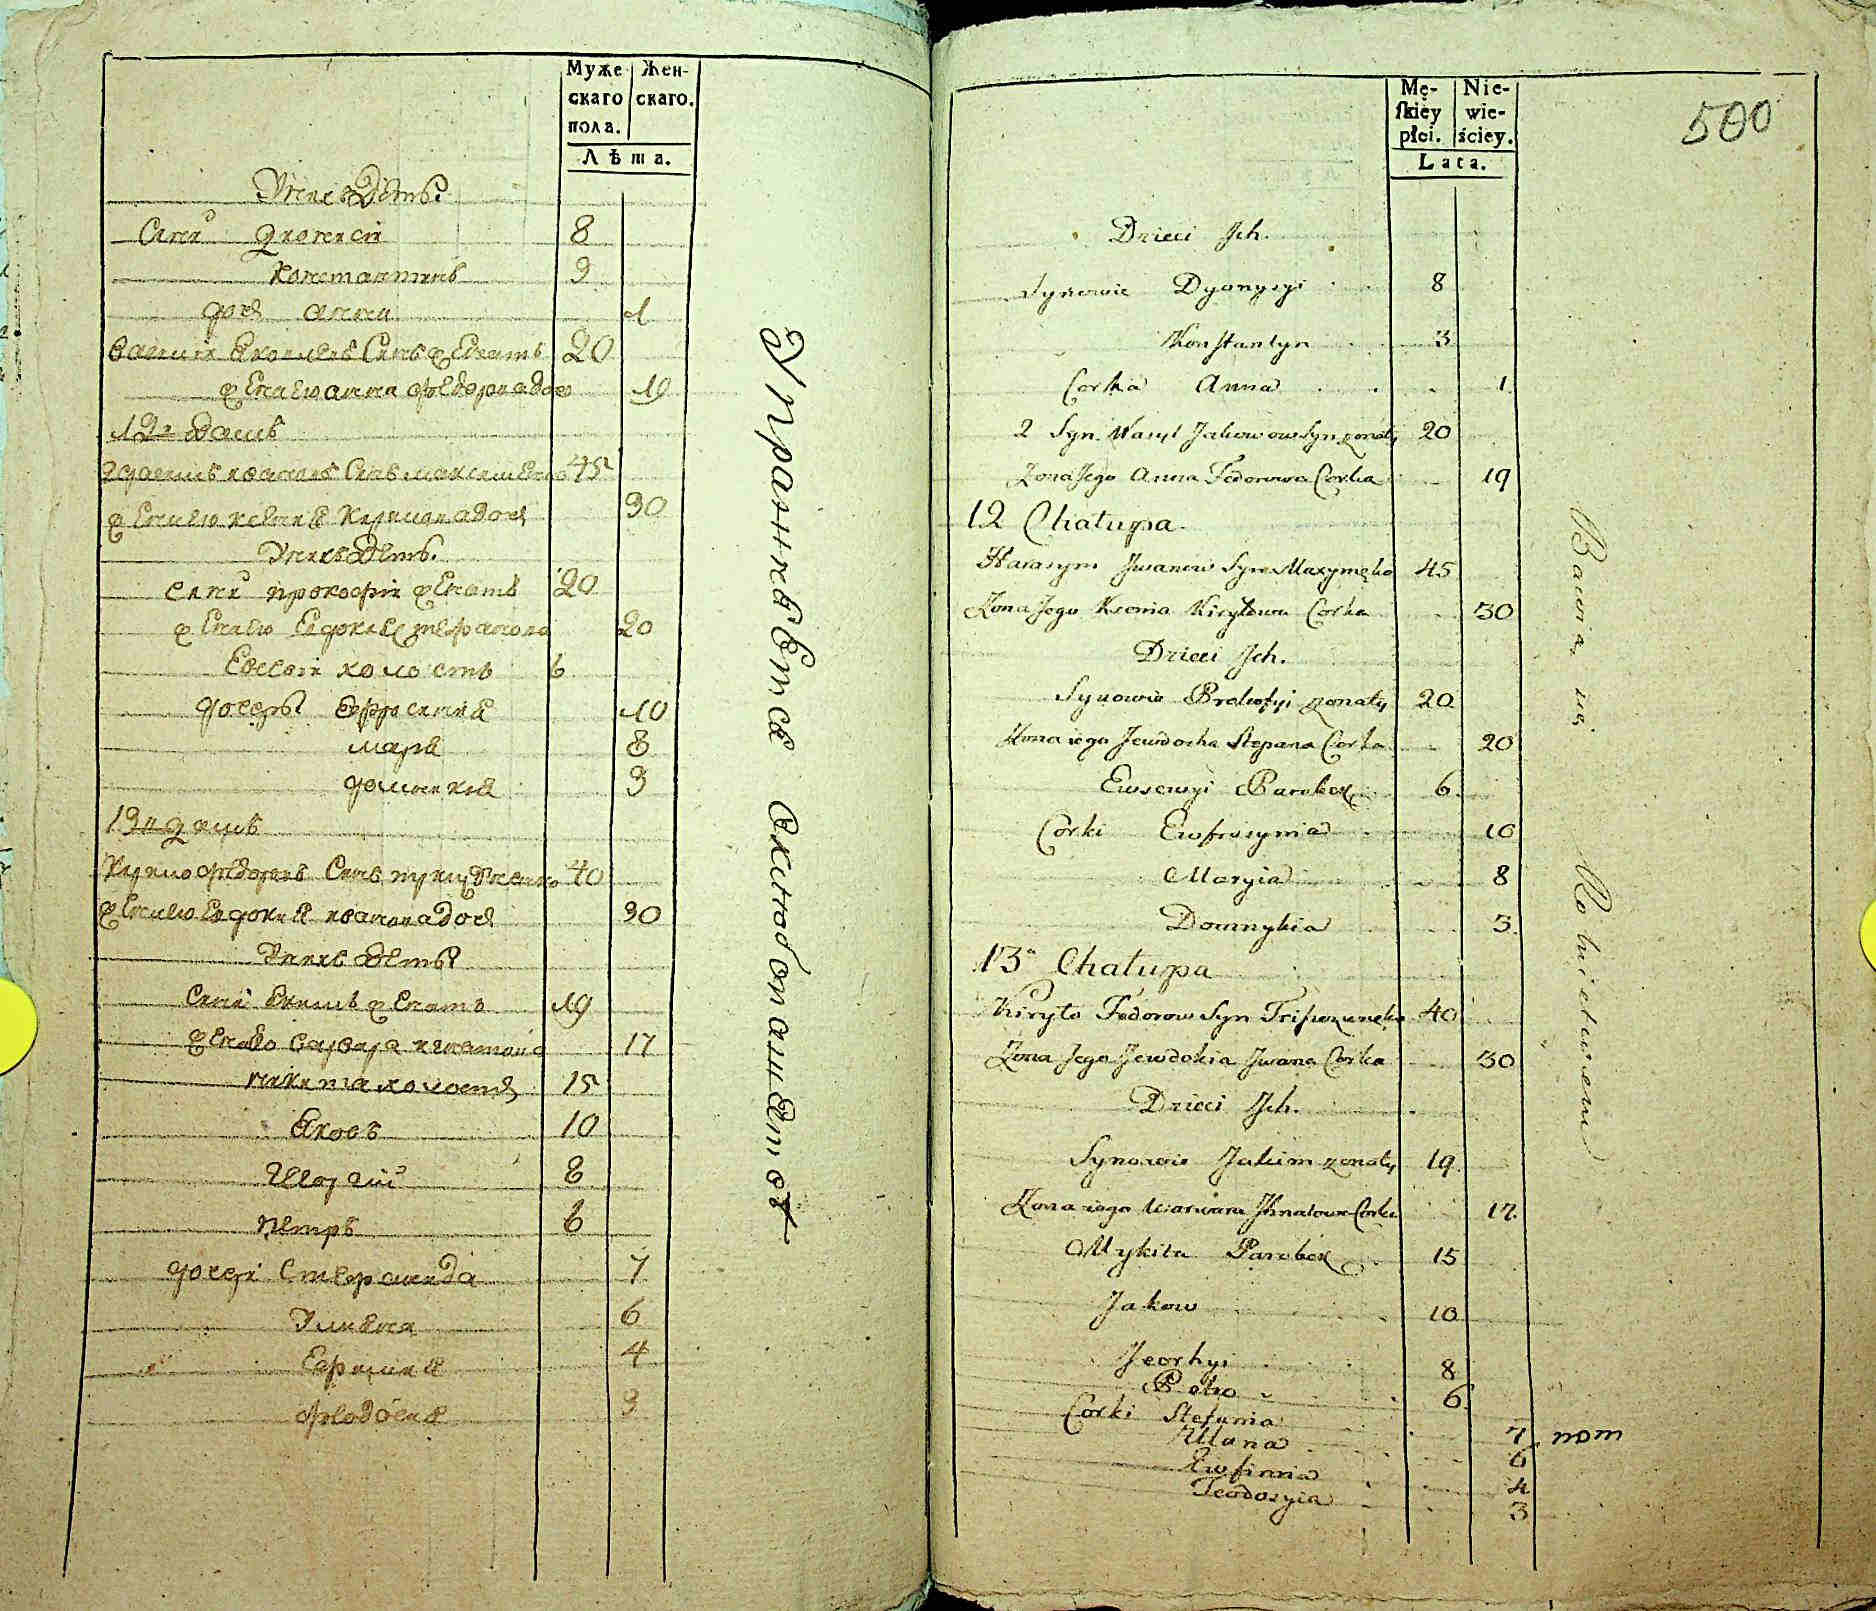 Муже Жен-
скаго скаго.
пола.
Лѣта.
У нихъ Дѣти
Сини Дионисій 8
Константинъ 3
дочь Анна 1
Василій Яковлевъ Синъ женатъ 20
жена ево анна федорова доч 19
12 домъ
Герасимъ ивановъ Синъ максименко 45
жена ево ксения Кирилова доч 30
У нихъ Дѣти
Сини прокофій женатъ 20
жена ево Евдокия степанова 20
Евсевій холостъ 6
дочери Ефросиния 10
мария 8
домникия 3
13 домъ
Кирило федоровъ Синъ 40
жена ево Евдокия иванова доч 30
У нихъ Дѣти
Сини Якимъ женатъ 19
жена ево варвара игнатова 17
никита холостъ 15
Яковъ 10
8
петръ 6
дочери Стефанида 7
Улияна 6
Ефимия 4
феодосия 3
У Пражнковѣтся
500
Mę- Nie-
skiéy wie-
płci. ściey.
Lata.
Dzieci Jch.
Synowie Dyonyzyi 8
Konstantyn 3
Corka Anna 1
2 Syn Wasyl Jakowow Syn zonaty 20
Zona Jego Anna Fedorowa Corka 19
12 Chatupa
Harasym Jwanow Syn Maxymęko 45
Zona Jego Ksenia Kirylowa Corka 30
Dzieci Jch.
Synowie Prokofyi zonaty 20
Zona iego Jewdocha Stepana Corka 20
Ewsewyi Parobek 6
Corki Ewfrosynia 10
Maryia 8
Domnykia 3
13 Chatupa
Kiryło Fedorow Syn 40
Zona Jego Jewdokia Jwana Corka 30
Dzieci Jch.
Synowie Jakim zonaty 19
Zona iego Warwara Jhnatowa Corka 17
Mykita Parobek 15
Jakow 10
Jeorhyi 8
Petro 6
Corki Stefania 7
Ulana 6
Ewfimia 4
Teodosyia 3